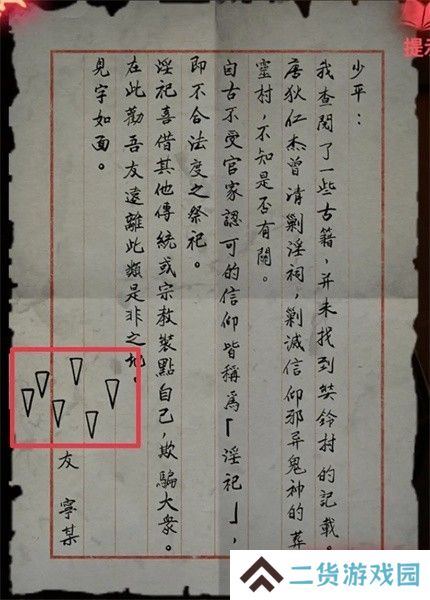 少平：
我查閱了一些古籍，并未找到奘鈴村的記載。
唐狄仁杰曾清剿淫祠，剿滅信仰邪异鬼神的葬
靈村，不知是否有關。
自古不受官家認可的信仰皆稱爲「淫祀」，
即不合法度之祭祀。
淫祀喜借其他傳統或宗教裝點自己，欺騙大衆。
在此勸吾友遠離此類是非之地。
見字如面。
友 寧某
提示
二货游戏园